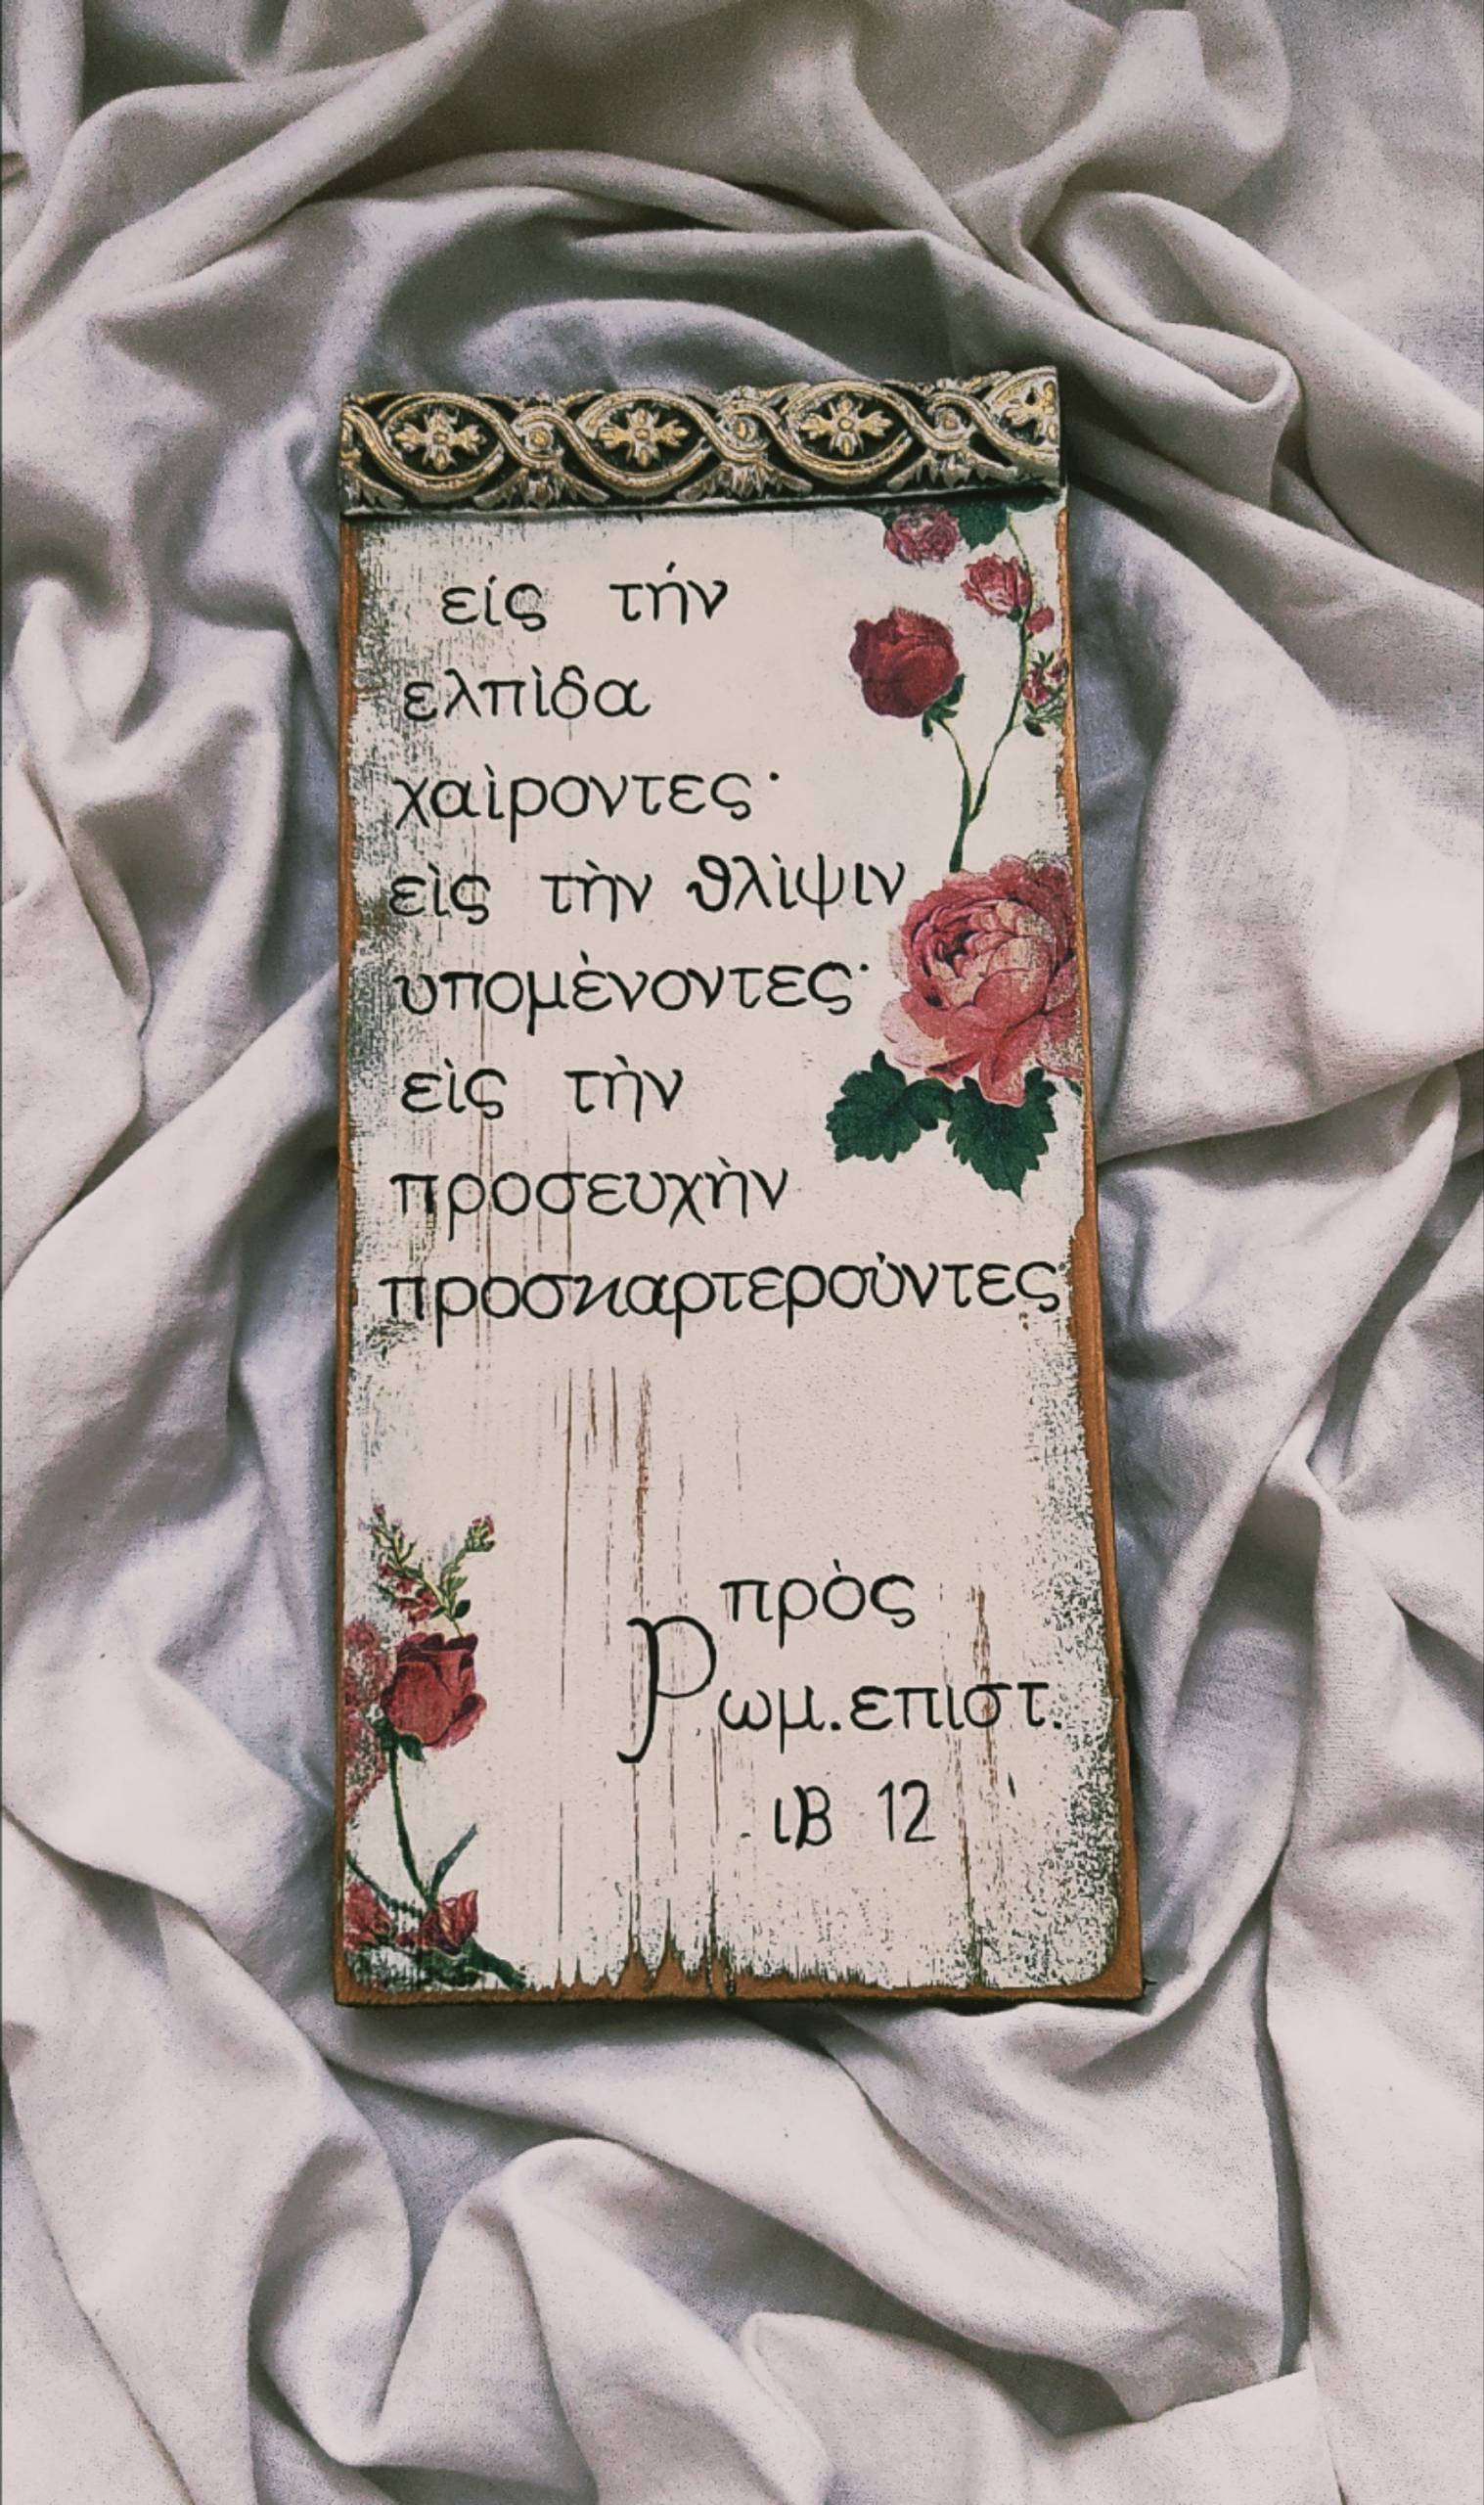 είς τήν
ελπὶδα
χαὶροντες·
εὶς τὴν θλὶψιν
υπομὲνοντες·
εὶς τὴν
προσευχὴν
προσκαρτεροὺντες·
πρὸς
Ρωμ.επιστ.
ιΒ 12